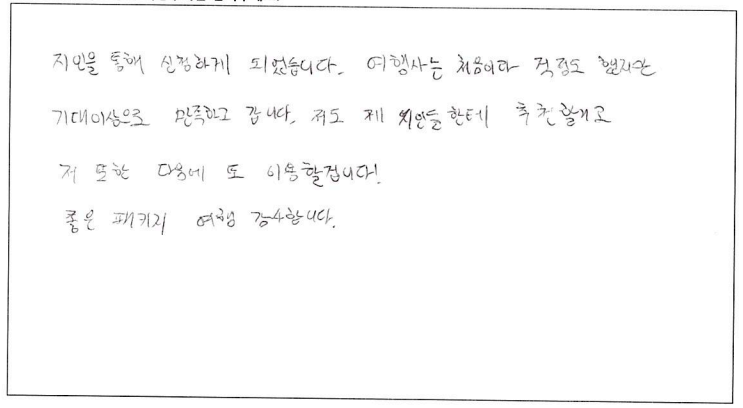 지인을 통해 신청하게 되었습니다. 여행사는 처음이라 걱정도 했지만
기대이상으로 만족하고 갑니다. 저도 제 지인들한테 추천할거고
저 또한 다음에 또 이용할겁니다!
좋은 패키지 여행 감사합니다.